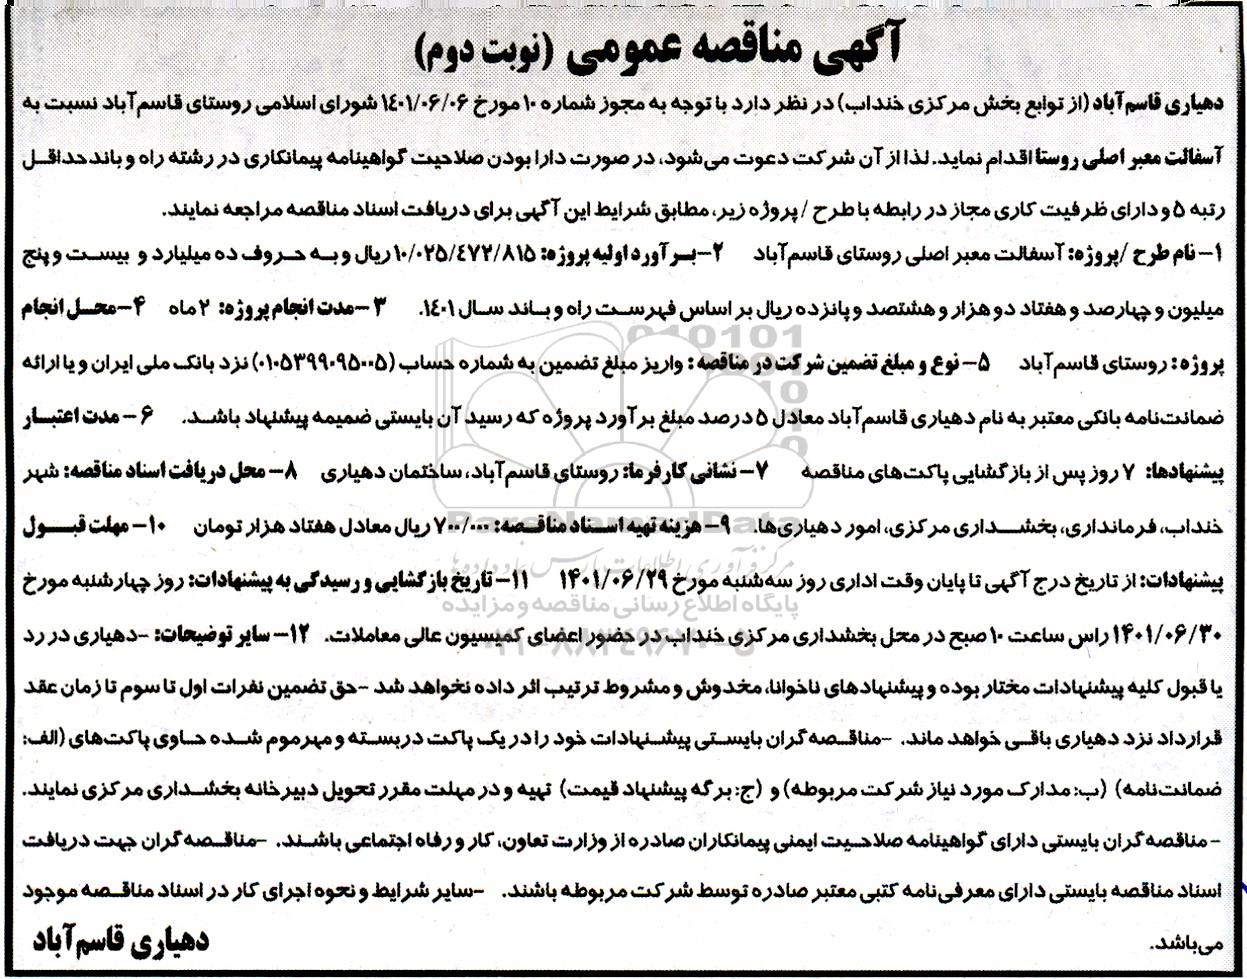 آگهی مناقصه عمومی (نوبت دوم)
دهیاری قاسم‌آباد (از توابع بخش مرکزی خنداب) در نظر دارد با توجه به مجوز شماره ۱۰ مورخ ۱۴۰۱/۰۶/۰۶ شورای اسلامی روستای قاسم‌آباد نسبت به
آسفالت معبر اصلی روستا اقدام نماید. لذا از آن شرکت دعوت می‌شود، در صورت دارا بودن صلاحیت گواهینامه پیمانکاری در رشته راه و باند حداقل
رتبه ۵ و دارای ظرفیت کاری مجاز در رابطه با طرح / پروژه زیر، مطابق شرایط این آگهی برای دریافت اسناد مناقصه مراجعه نمایند.
۱- نام طرح /پروژه: آسفالت معبر اصلی روستای قاسم‌آباد ۲-بـر آورد اولیه پروژه: ۱۰/۰۲۵/۴۷۲/۸۱۵ ریال و به حروف ده میلیارد و بیست و پنج
میلیون و چهارصد و هفتاد دو هزار و هشتصد و پانزده ریال بر اساس فهرست راه و باند سال ۱۴۰۱. ۳-مدت انجام پروژه: ۲ ماه ۴-محل انجام
پروژه: روستای قاسم‌آباد ۵- نوع و مبلغ تضمین شرکت در مناقصه: واریز مبلغ تضمین به شماره حساب (۰۱۰۵۳۹۹۰۹۵۰۰۵) نزد بانک ملی ایران و یا ارائه
ضمانت‌نامه بانکی معتبر به نام دهیاری قاسم‌آباد معادل ۵ درصد مبلغ برآورد پروژه که رسید آن بایستی ضمیمه پیشنهاد باشد. ۶- مدت اعتبار
پیشنهادها: ۷ روز پس از بازگشایی پاکت‌های مناقصه ۷- نشانی کارفرما: روستای قاسم‌آباد، ساختمان دهیاری ۸- محل دریافت اسناد مناقصه: شهر
خنداب، فرمانداری، بخشداری مرکزی، امور دهیاری‌ها. ۹- هزینه تهیه اسناد مناقصه: ۷۰۰/۰۰۰ ریال معادل هفتاد هزار تومان ۱۰- مهلت قبول
پیشنهادات: از تاریخ درج آگهی تا پایان وقت اداری روز سه‌شنبه مورخ ۱۴۰۱/۰۶/۲۹ ۱۱- تاریخ بازگشایی و رسیدگی به پیشنهادات: روز چهارشنبه مورخ
۱۴۰۱/۰۶/۳۰ راس ساعت ۱۰ صبح در محل بخشداری مرکزی خنداب در حضور اعضای کمیسیون عالی معاملات. ۱۲- سایر توضیحات: -دهیاری در رد
یا قبول کلیه پیشنهادات مختار بوده و پیشنهادهای ناخوانا، مخدوش و مشروط ترتیب اثر داده نخواهد شد -حق تضمین نفرات اول تا سوم تا زمان عقد
قرارداد نزد دهیاری باقی خواهد ماند. -مناقصه‌گران بایستی پیشنهادات خود را در یک پاکت دربسته و مهرموم شده حاوی پاکت‌های (الف:
ضمانت‌نامه) (ب: مدارک مورد نیاز شرکت مربوطه) و (ج: برگه پیشنهاد قیمت) تهیه و در مهلت مقرر تحویل دبیرخانه بخشداری مرکزی نمایند.
-مناقصه‌گران بایستی دارای گواهینامه صلاحیت ایمنی پیمانکاران صادره از وزارت تعاون، کار و رفاه اجتماعی باشند. -مناقصه‌گران جهت دریافت
اسناد مناقصه بایستی دارای معرفی‌نامه کتبی معتبر صادره توسط شرکت مربوطه باشند. -سایر شرایط و نحوه اجرای کار در اسناد مناقصه موجود
می‌باشد.
دهیاری قاسم‌آباد
ParsNamadData
پایگاه اطلاع رسانی مناقصه و مزایده